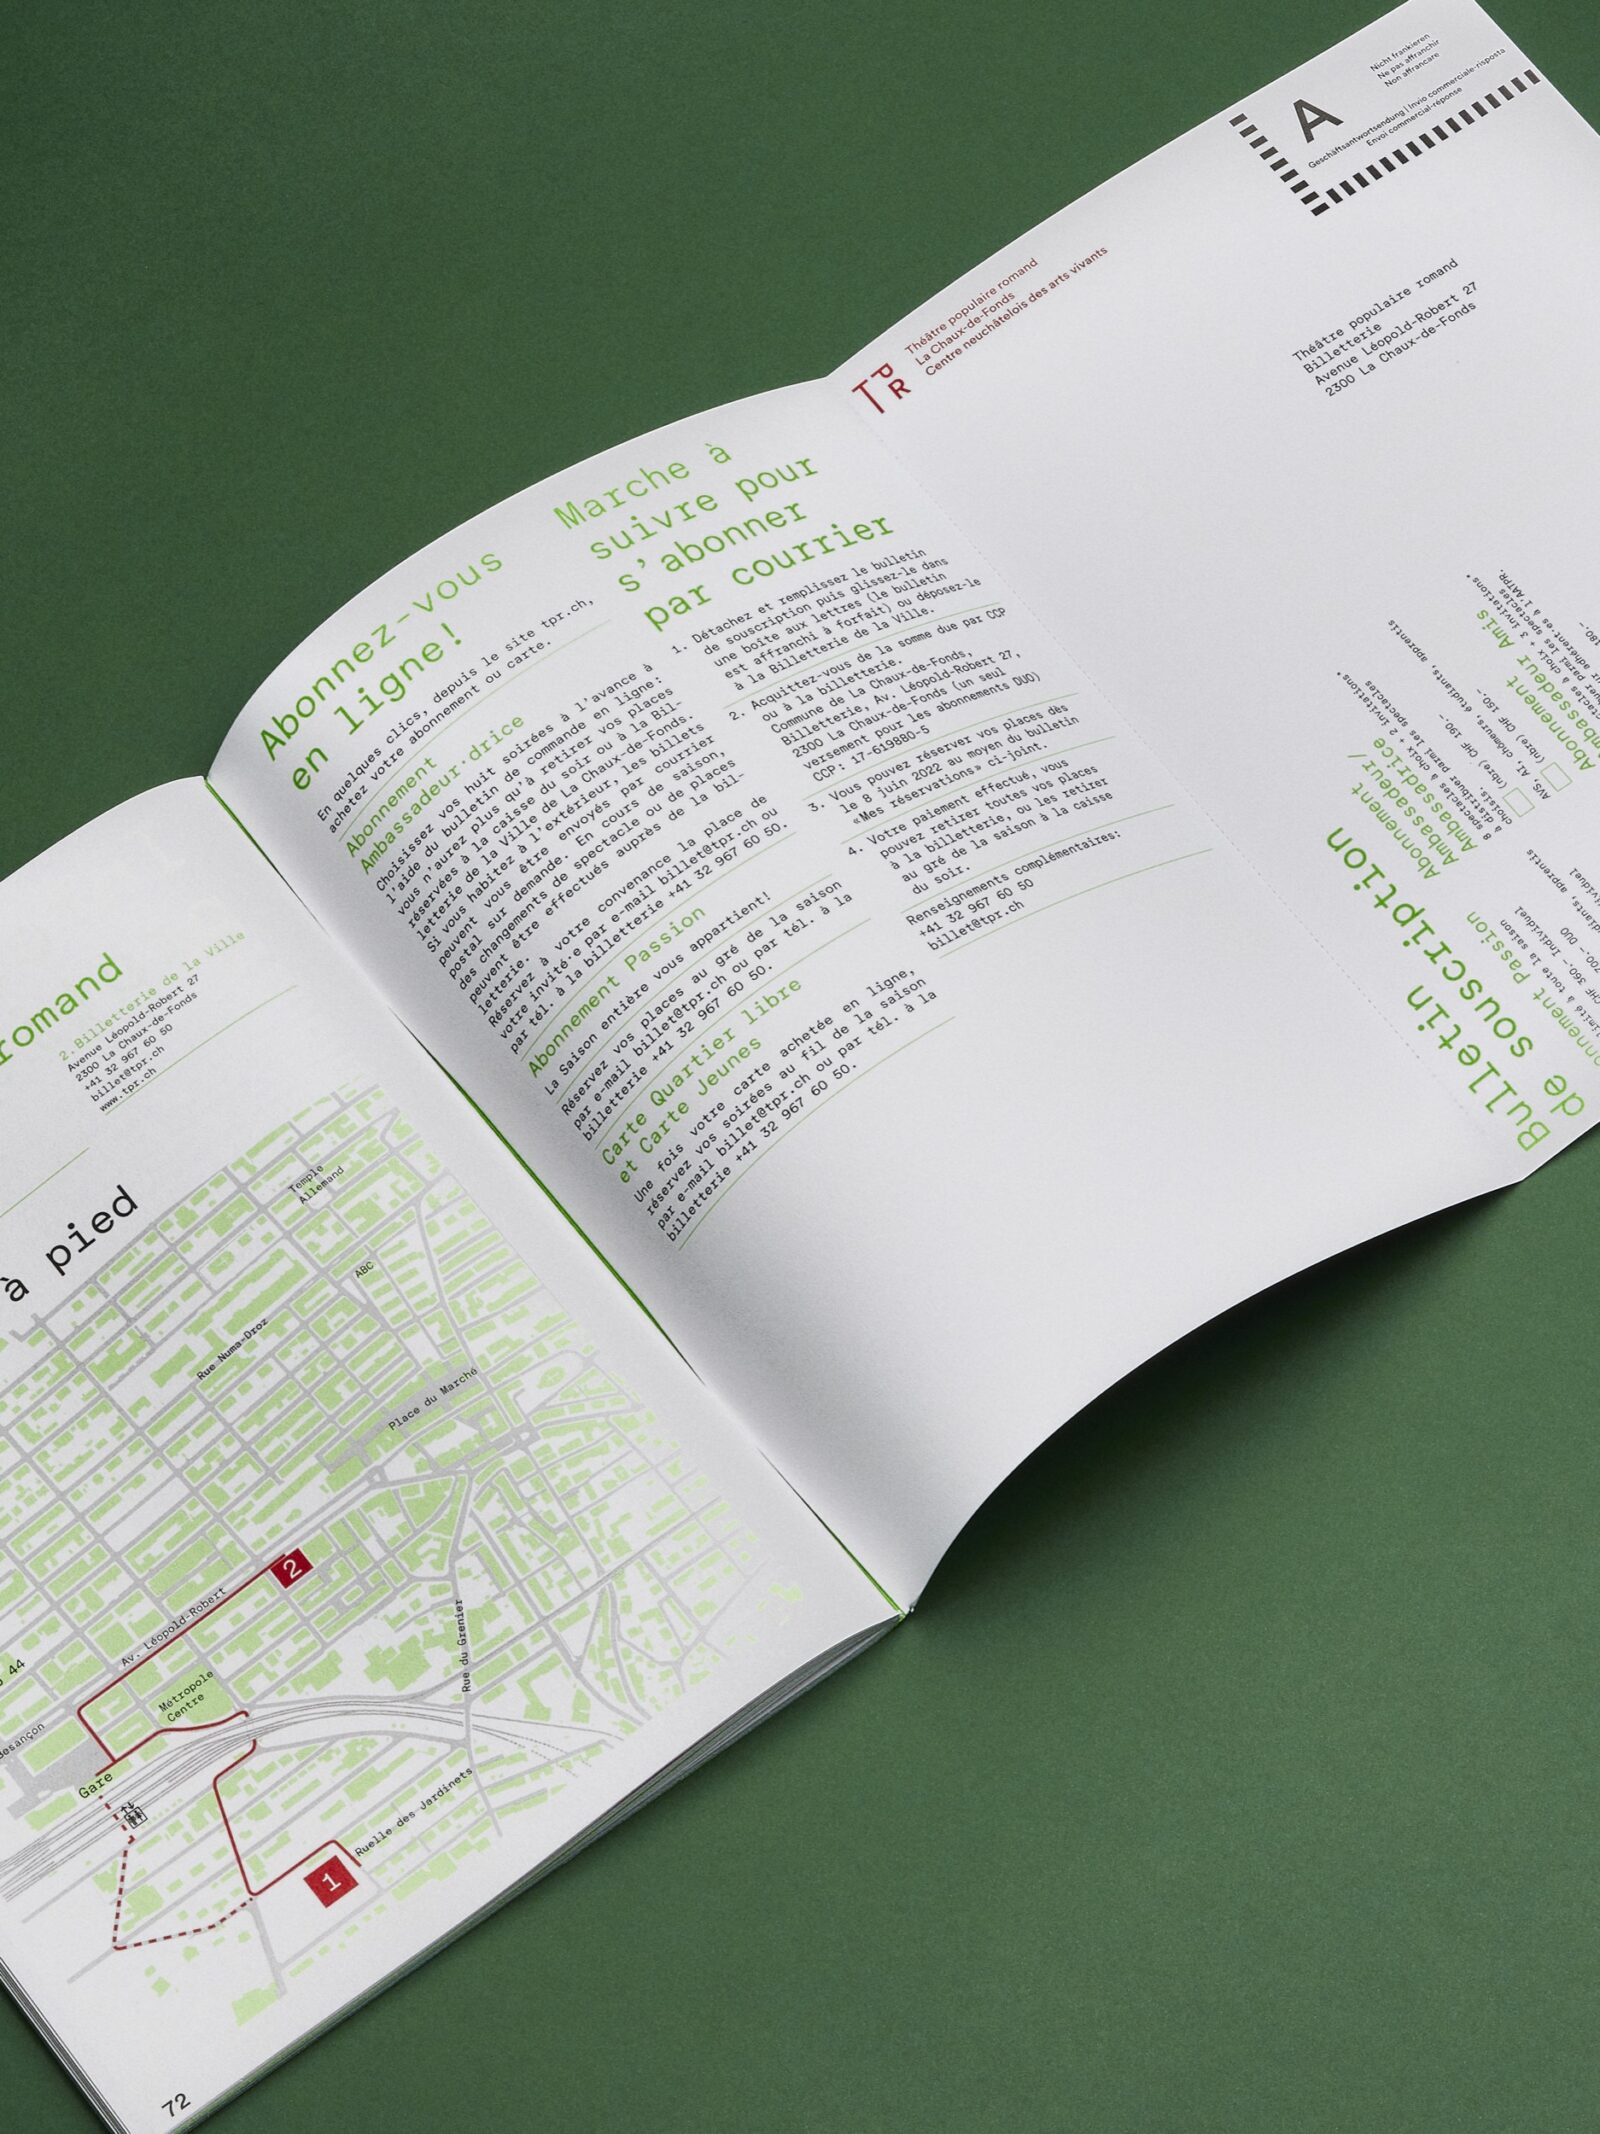 romand
2. Billetterie de la Ville
Avenue Léopold-Robert 27
2300 La Chaux-de-Fonds
+41 32 967 60 50
billet@tpr.ch
www.tpr.ch
à pied
Temple
Allemand
ABC
Rue Numa-Droz
Place du Marché
2
Av. Léopold-Robert
Métropole
Centre
Rue du Grenier
44
Besançon
Gare
Ruelle des Jardinets
1
72
Abonnez-vous
en ligne!
En quelques clics, depuis le site tpr.ch,
achetez votre abonnement ou carte.
Abonnement
Ambassadeur·drice
Choisissez vos huit soirées à l'avance à
l'aide du bulletin de commande en ligne:
vous n'aurez plus qu'à retirer vos places
réservées à la caisse du soir ou à la Bil-
letterie de la Ville de La Chaux-de-Fonds.
Si vous habitez à l'extérieur, les billets
peuvent vous être envoyés par courrier
postal sur demande. En cours de saison,
des changements de spectacle ou de places
peuvent être effectués auprès de la bil-
letterie.
Réservez à votre convenance la place de
votre invité·e par e-mail billet@tpr.ch ou
par tél. à la billetterie +41 32 967 60 50.
Abonnement Passion
La Saison entière vous appartient!
Réservez vos places au gré de la saison
par e-mail billet@tpr.ch ou par tél. à la
billetterie +41 32 967 60 50.
Carte Quartier libre
et Carte Jeunes
Une fois votre carte achetée en ligne,
réservez vos soirées au fil de la saison
par e-mail billet@tpr.ch ou par tél. à la
billetterie +41 32 967 60 50.
Marche à
suivre pour
s'abonner
par courrier
1. Détachez et remplissez le bulletin
de souscription puis glissez-le dans
une boîte aux lettres (le bulletin
est affranchi à forfait) ou déposez-le
à la Billetterie de la Ville.
2. Acquittez-vous de la somme due par CCP
ou à la billetterie.
Commune de La Chaux-de-Fonds,
Billetterie, Av. Léopold-Robert 27,
2300 La Chaux-de-Fonds (un seul
versement pour les abonnements DUO)
CCP: 17-619880-5
3. Vous pouvez réserver vos places dès
le 8 juin 2022 au moyen du bulletin
«Mes réservations» ci-joint.
4. Votre paiement effectué, vous
pouvez retirer toutes vos places
à la billetterie, ou les retirer
au gré de la saison à la caisse
du soir.
Renseignements complémentaires:
+41 32 967 60 50
billet@tpr.ch
TPR
Théâtre populaire romand
La Chaux-de-Fonds
Centre neuchâtelois des arts vivants
Nicht frankieren
Ne pas affranchir
Non affrancare
A
Geschäftsantwortsendung | Invio commerciale-risposta
Envoi commercial-réponse
Théâtre populaire romand
Billetterie
Avenue Léopold-Robert 27
2300 La Chaux-de-Fonds
Bulletin
de souscription
Passion
à toute la saison
Individuel
DUO
Abonnement
Ambassadeur/
Ambassadrice
8 spectacles à choix +
à distribuer parmi les spectacles
choisis.
(nbre) CHF 190.–
(nbre) CHF 150.–
AVS, AI, chômeurs, étudiants, apprentis
Abonnement
Ambassadeur Amis